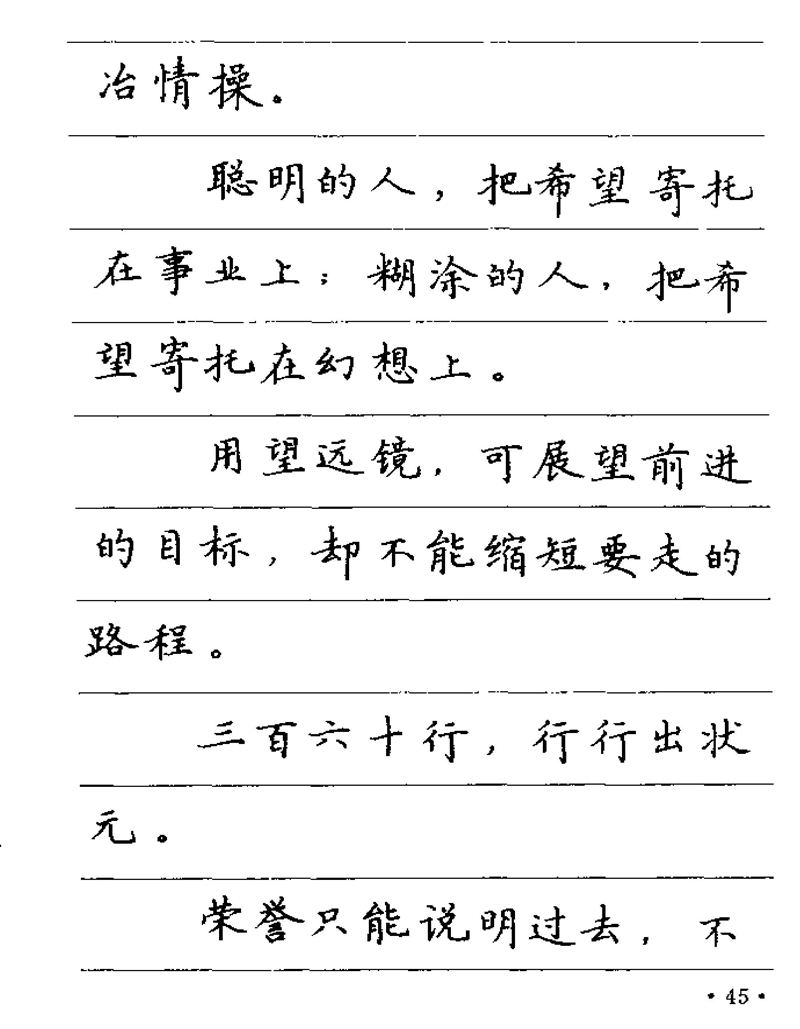 冶情操。
聪明的人，把希望寄托
在事业上；糊涂的人，把希
望寄托在幻想上。
用望远镜，可展望前进
的目标，却不能缩短要走的
路程。
三百六十行，行行出状
元。
荣誉只能说明过去，不
·45·